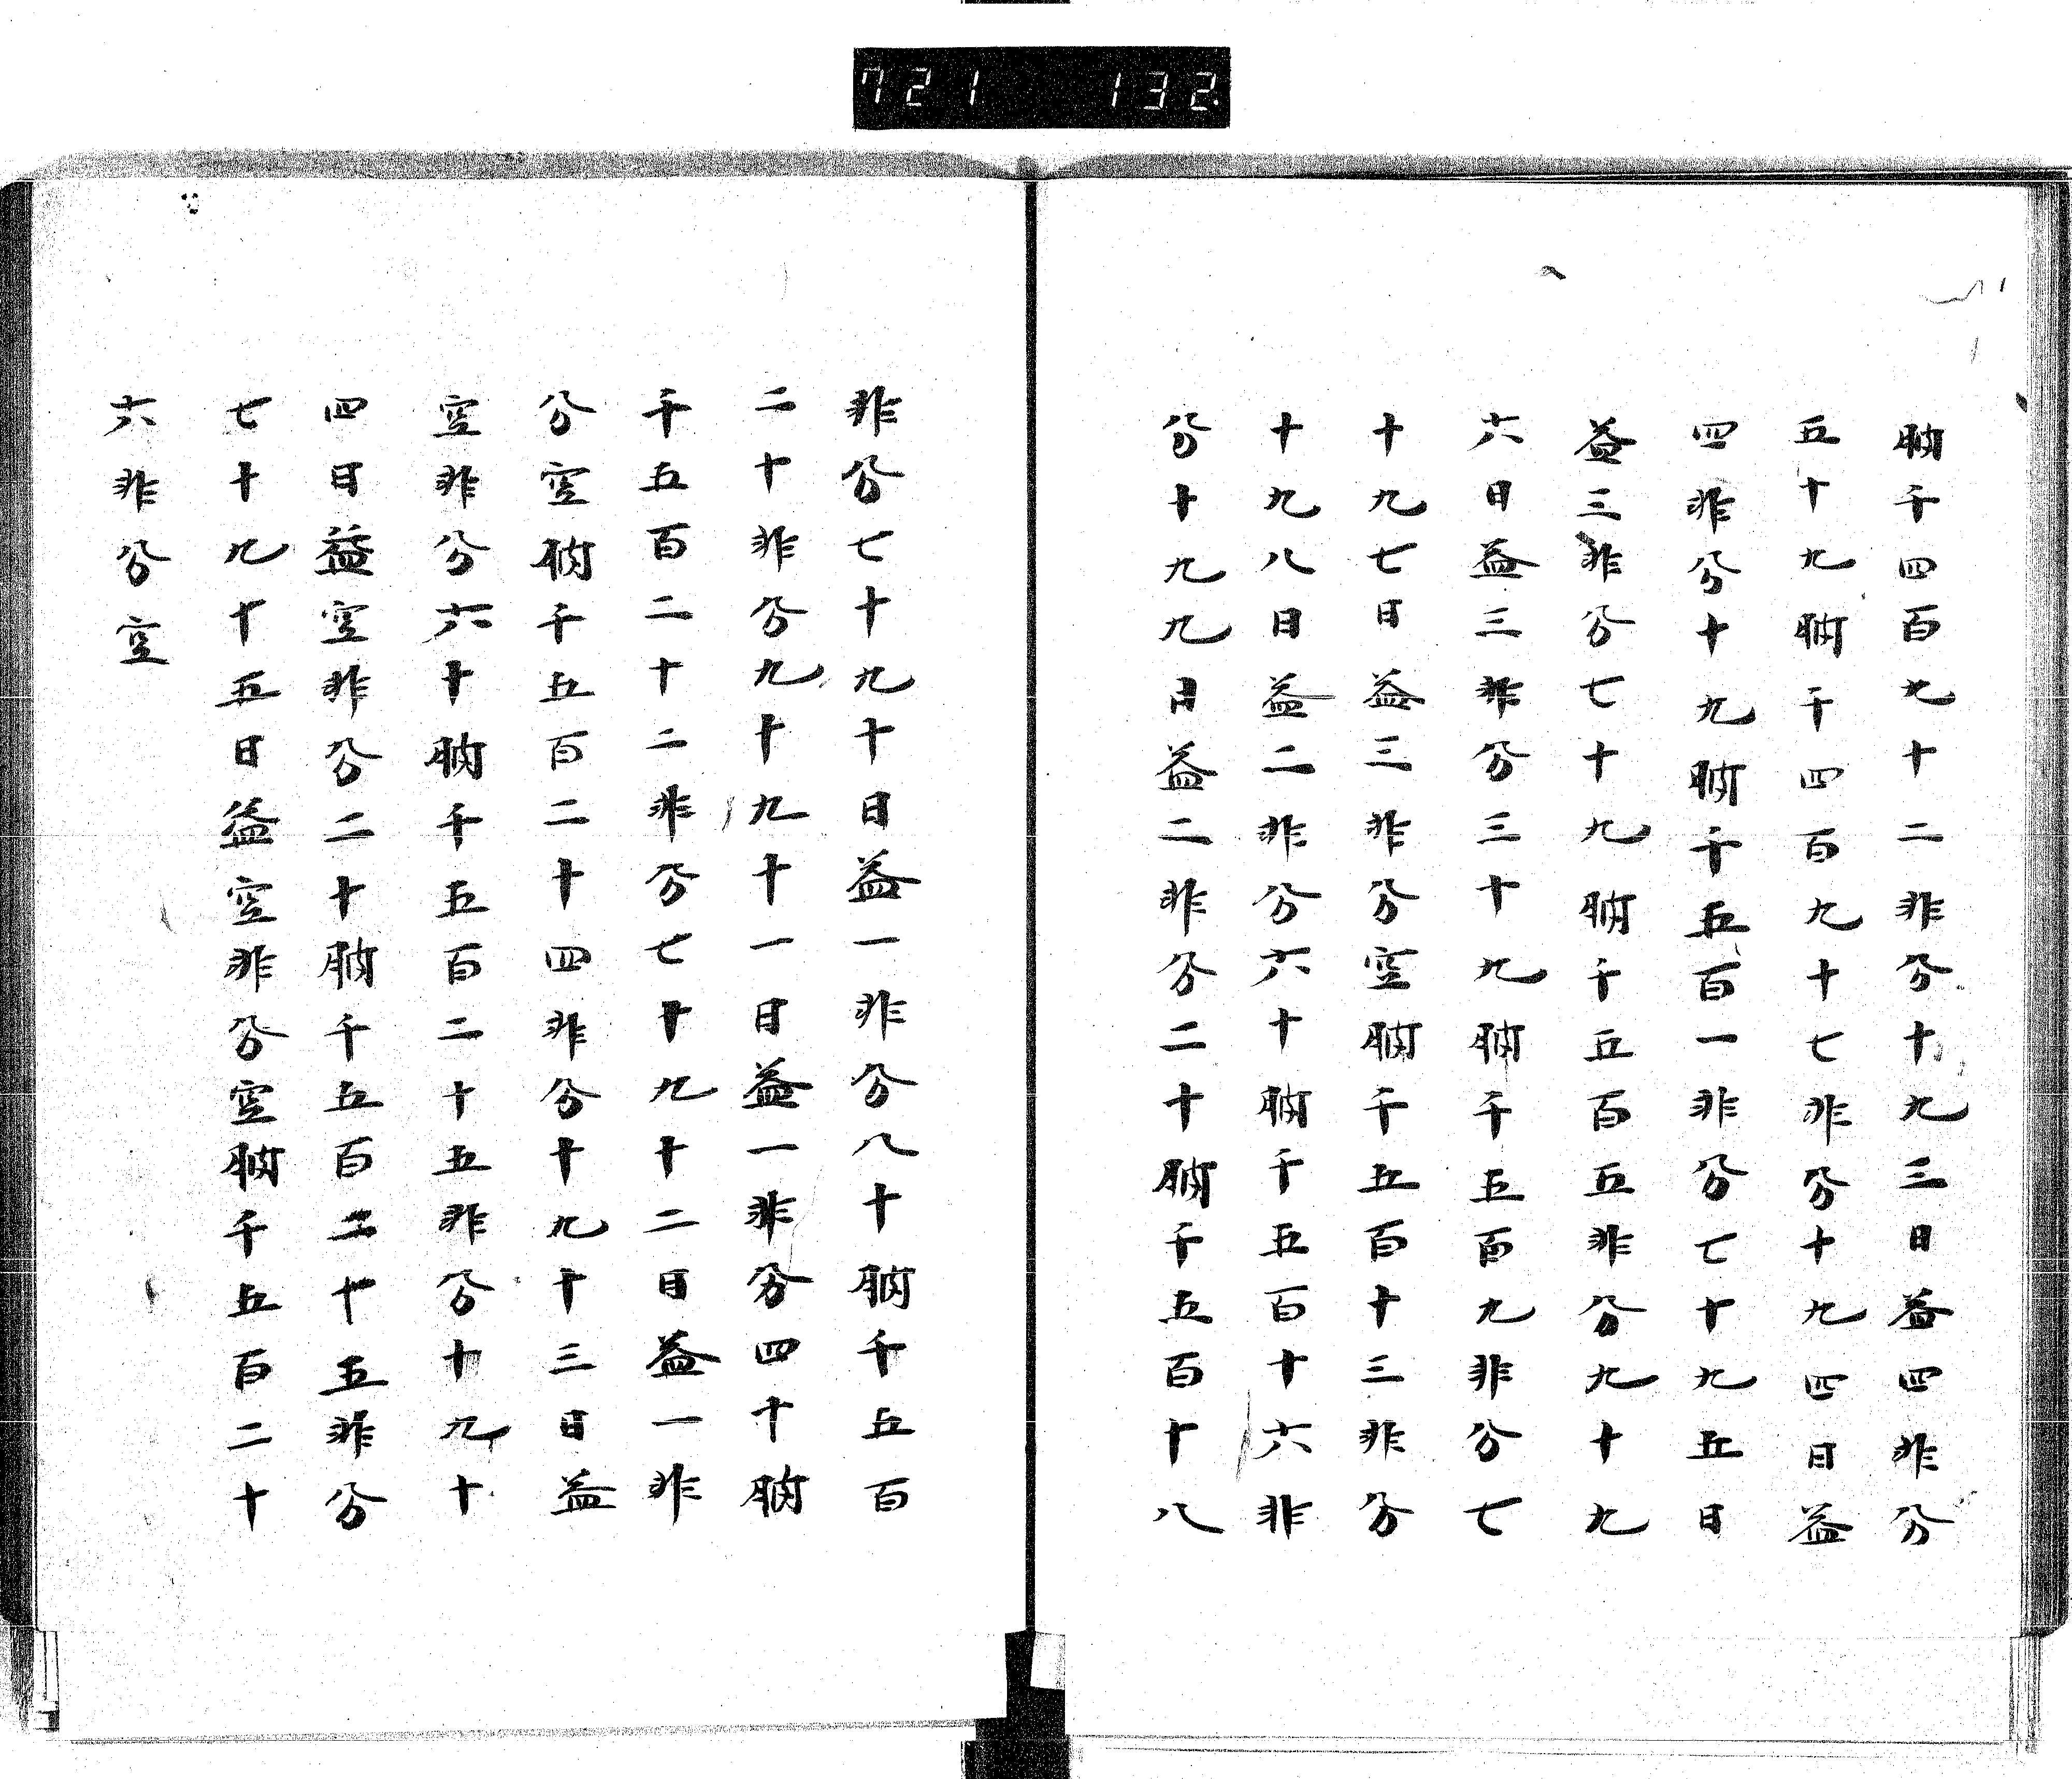 721 132
朒千四百九十二非分十九三日益四非分
五十九朒千四百九十七非分十九四日益
四非分十九朒千五百一非分七十九五日
益三非分七十九朒千五百五非分九十九
六日益三非分三十九朒千五百九非分七
十九七日益三非分空朒千五百十三非分
十九八日益二非分六十朒千五百十六非
分十九九日益二非分二十朒千五百十八
非分七十九十日益一非分八十朒千五百
二十非分九十九十一日益一非分四十朒
千五百二十二非分七十九十二日益一非
分空朒千五百二十四非分十九十三日益
空非分六十朒千五百二十五非分十九十
四日益空非分二十朒千五百二十五非分
七十九十五日益空非分空朒千五百二十
六非分空